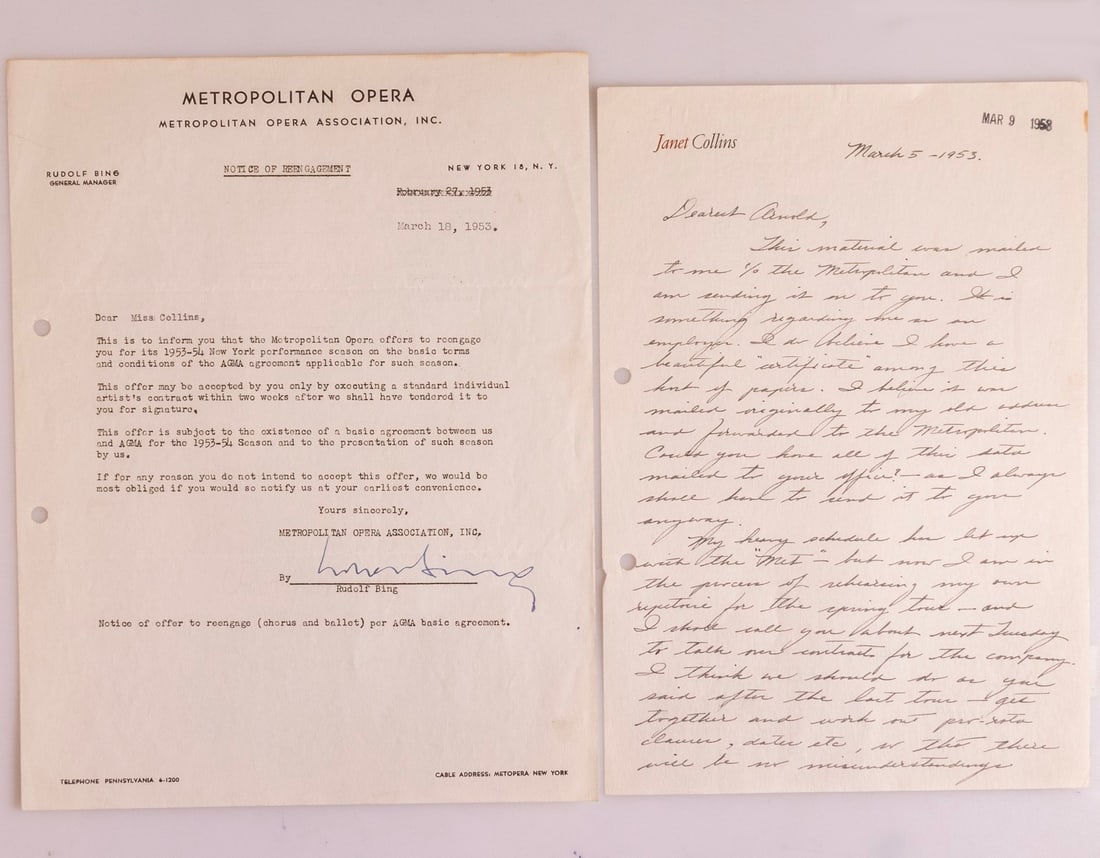 METROPOLITAN OPERA
METROPOLITAN OPERA ASSOCIATION, INC.
RUDOLF BING
GENERAL MANAGER
NOTICE OF REENGAGEMENT
NEW YORK 18, N. Y.
February 27, 1953
March 18, 1953.
Dear Miss Collins,
This is to inform you that the Metropolitan Opera offers to reengage
you for its 1953-54 New York performance season on the basic terms
and conditions of the AGMA agreement applicable for such season.
This offer may be accepted by you only by executing a standard individual
artist's contract within two weeks after we shall have tendered it to
you for signature.
This offer is subject to the existence of a basic agreement between us
and AGMA for the 1953-54 Season and to the presentation of such season
by us.
If for any reason you do not intend to accept this offer, we would be
most obliged if you would so notify us at your earliest convenience.
Yours sincerely,
METROPOLITAN OPERA ASSOCIATION, INC.
By
Rudolf Bing
Notice of offer to reengage (chorus and ballet) per AGMA basic agreement.
TELEPHONE PENNSYLVANIA 6-1200
CABLE ADDRESS: METOPERA NEW YORK
MAR 9 1953
Janet Collins
March 5 - 1953.
Dearest Arnold,
This material was mailed
to me c/o the Metropolitan and I
am sending it on to you. It is
something regarding me as an
employer. I do believe I have a
beautiful "certificate" among this
host of papers. I believe it was
mailed originally to my old address
and forwarded to the Metropolitan.
Could you have all of this data
mailed to your office? - as I always
shall have to send it to you
anyway.
My heavy schedule has let up
with the "Met" - but now I am in
the process of rehearsing my own
repetoire for the spring tour - and
I shall call you about next Tuesday
to talk over contracts for the company.
I think we should do as you
said after the last tour - get
together and work out pro-rata
clauses, dates etc, so that there
will be no misunderstandings